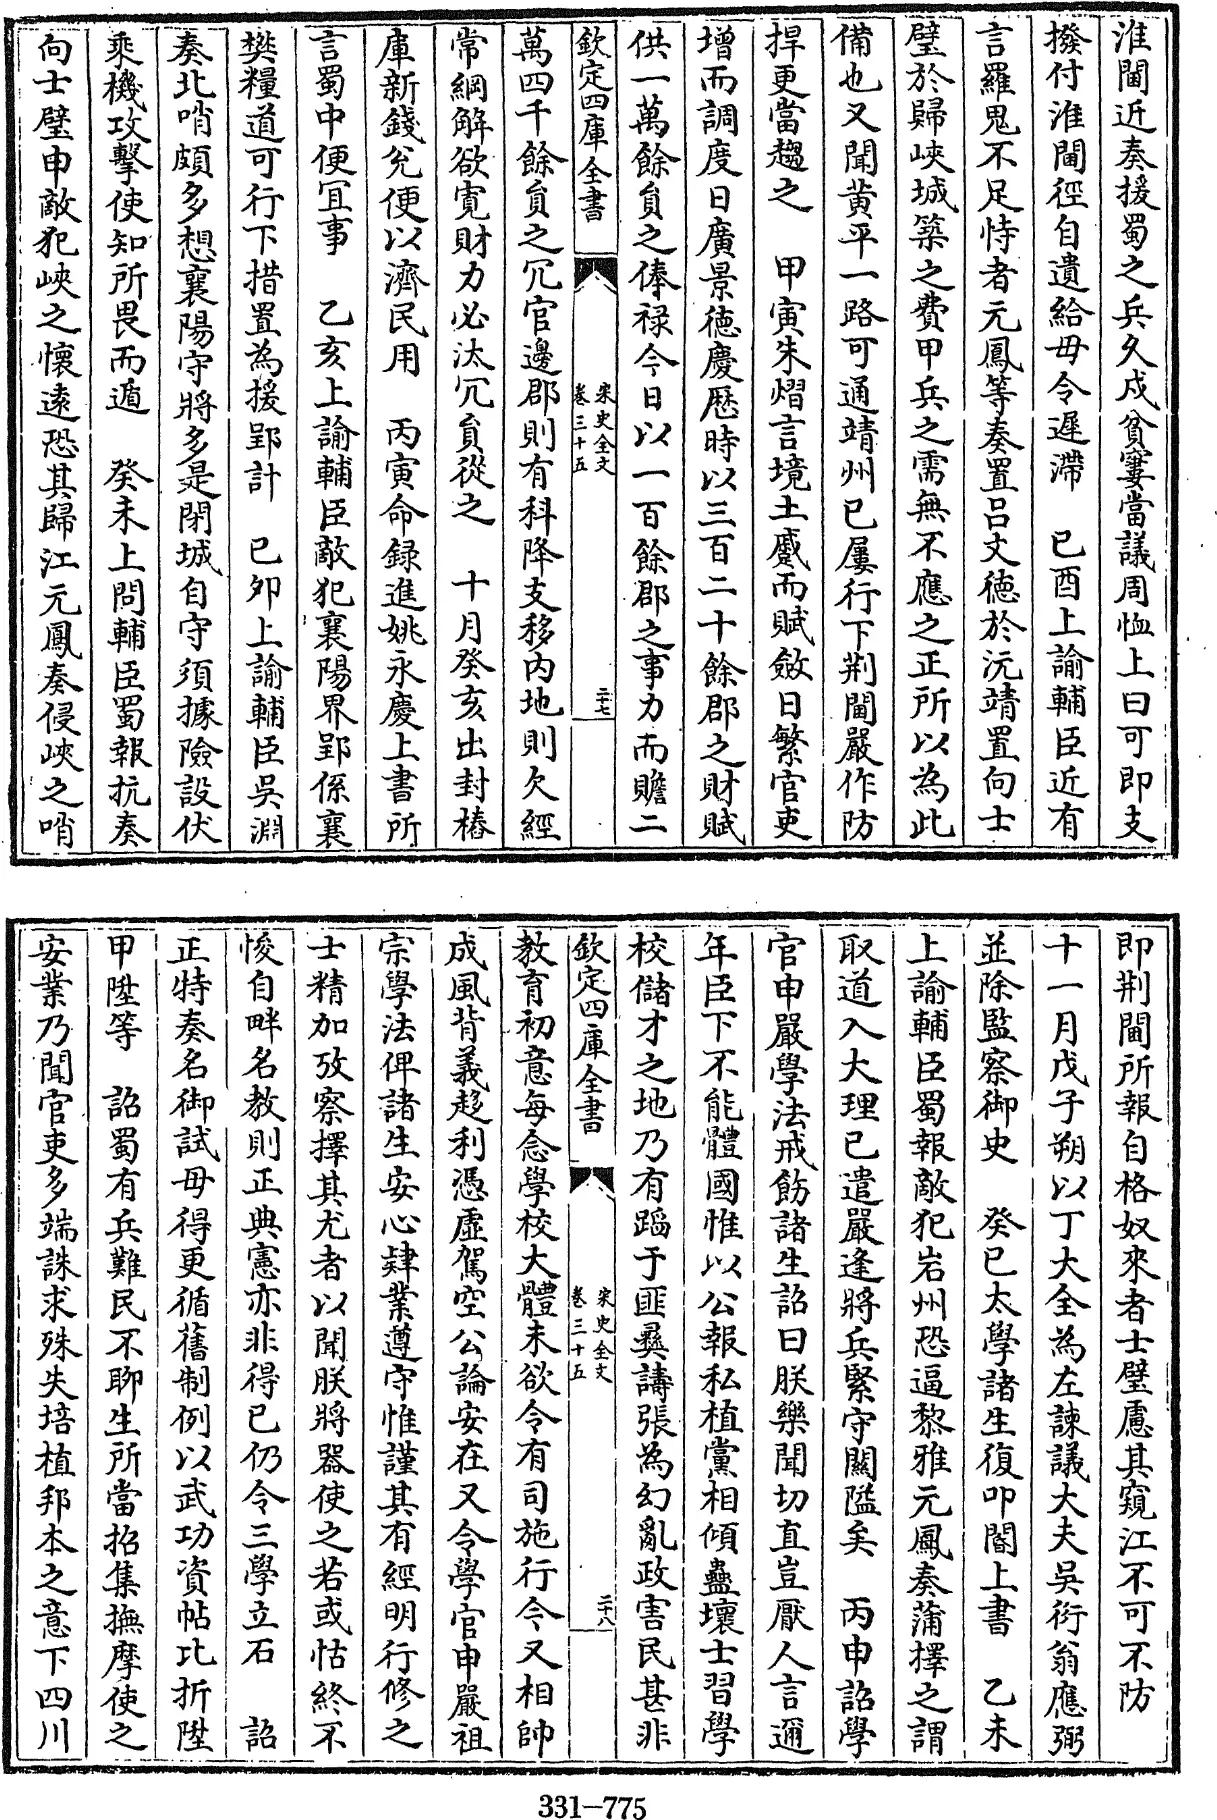 淮閫近奏援蜀之兵久戍貧窶當議周恤上曰可即支
撥付淮閫徑自遺給毋令遲滯　已酉上諭輔臣近有
言羅鬼不足恃者元鳳等奏置吕文徳於沅靖置向士
璧於歸峽城築之費甲兵之需無不應之正所以為此
備也又聞黄平一路可通靖州已屢行下荆閫嚴作防
捍更當趨之　甲寅朱熠言境土蹙而賦斂日繁官吏
增而調度日廣景徳慶厯時以三百二十餘郡之財賦
供一萬餘員之俸禄今日以一百餘郡之事力而贍二
欽定四庫全書
宋史全文
卷三十五
二十七
萬四千餘員之冗官邊郡則有科降支移内地則欠經
常綱解欲寛財力必汰冗員從之　十月癸亥出封樁
庫新錢兊便以濟民用　丙寅命録進姚永慶上書所
言蜀中便冝事　乙亥上諭輔臣敵犯襄陽界郢係襄
樊糧道可行下措置為援郢計　已夘上諭輔臣吳淵
奏北哨頗多想襄陽守將多是閉城自守須據險設伏
乘機攻擊使知所畏而遁　癸未上問輔臣蜀報抗奏
向士璧申敵犯峽之懷逺恐其歸江元鳳奏侵峽之哨
即荆閫所報自格奴來者士璧慮其窺江不可不防
十一月戊子朔以丁大全為左諫議大夫吳衍翁應弼
並除監察御史　癸巳太學諸生復叩閽上書　乙未
上諭輔臣蜀報敵犯岩州恐逼黎雅元鳳奏蒲擇之謂
取道入大理已遣嚴逢將兵緊守關隘矣　丙申詔學
官申嚴學法戒飭諸生詔曰朕樂聞切直豈厭人言邇
年臣下不能體國惟以公報私植黨相傾蠱壞士習學
校儲才之地乃有蹈于匪彞譸張為幻亂政害民甚非
欽定四庫全書
宋史全文
卷三十五
二十八
教育初意每念學校大體未欲令有司施行今又相帥
成風背義趍利憑虚駕空公論安在又令學官申嚴祖
宗學法俾諸生安心肄業遵守惟謹其有經明行修之
士精加攷察擇其尤者以聞朕將器使之若或怙終不
悛自畔名教則正典憲亦非得已仍令三學立石　詔
正特奏名御試毋得更循舊制例以武功資帖比折陞
甲陞等　詔蜀有兵難民不聊生所當招集撫摩使之
安業乃聞官吏多端誅求殊失培植邦本之意下四川
331-775